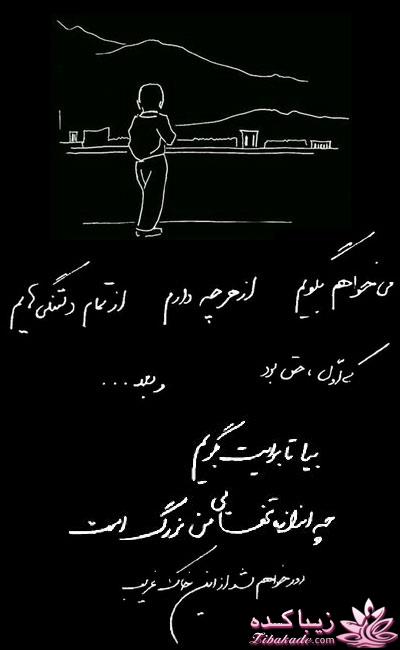 می‌خواهم بگویم از هرچه دارم از تمام دلتنگی‌هایم
اوّل ، حق بود و بعد ...
بیا تا برایت بگویم
چه اندازه تنهایی من بزرگ است
دور خواهم شد از این خاک غریب
زیباکده
Zibakade.com